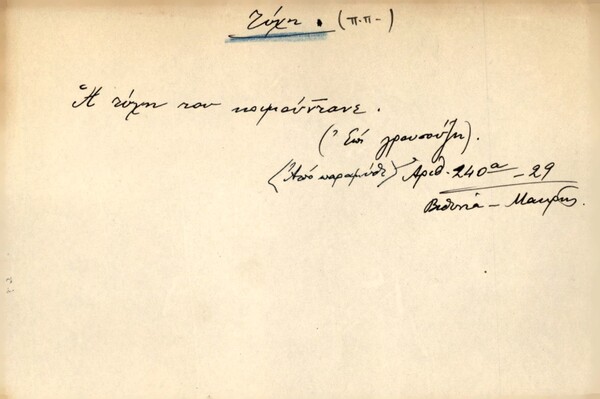 τύχη. (π.π-)
Ἡ τύχη του κοιμούντανε.
(Ἐπί γρουσούζη).
(Ἀπό παραμύθι) Ἀριθ. 240α - 29
Βιθυνία - Μακρῆς